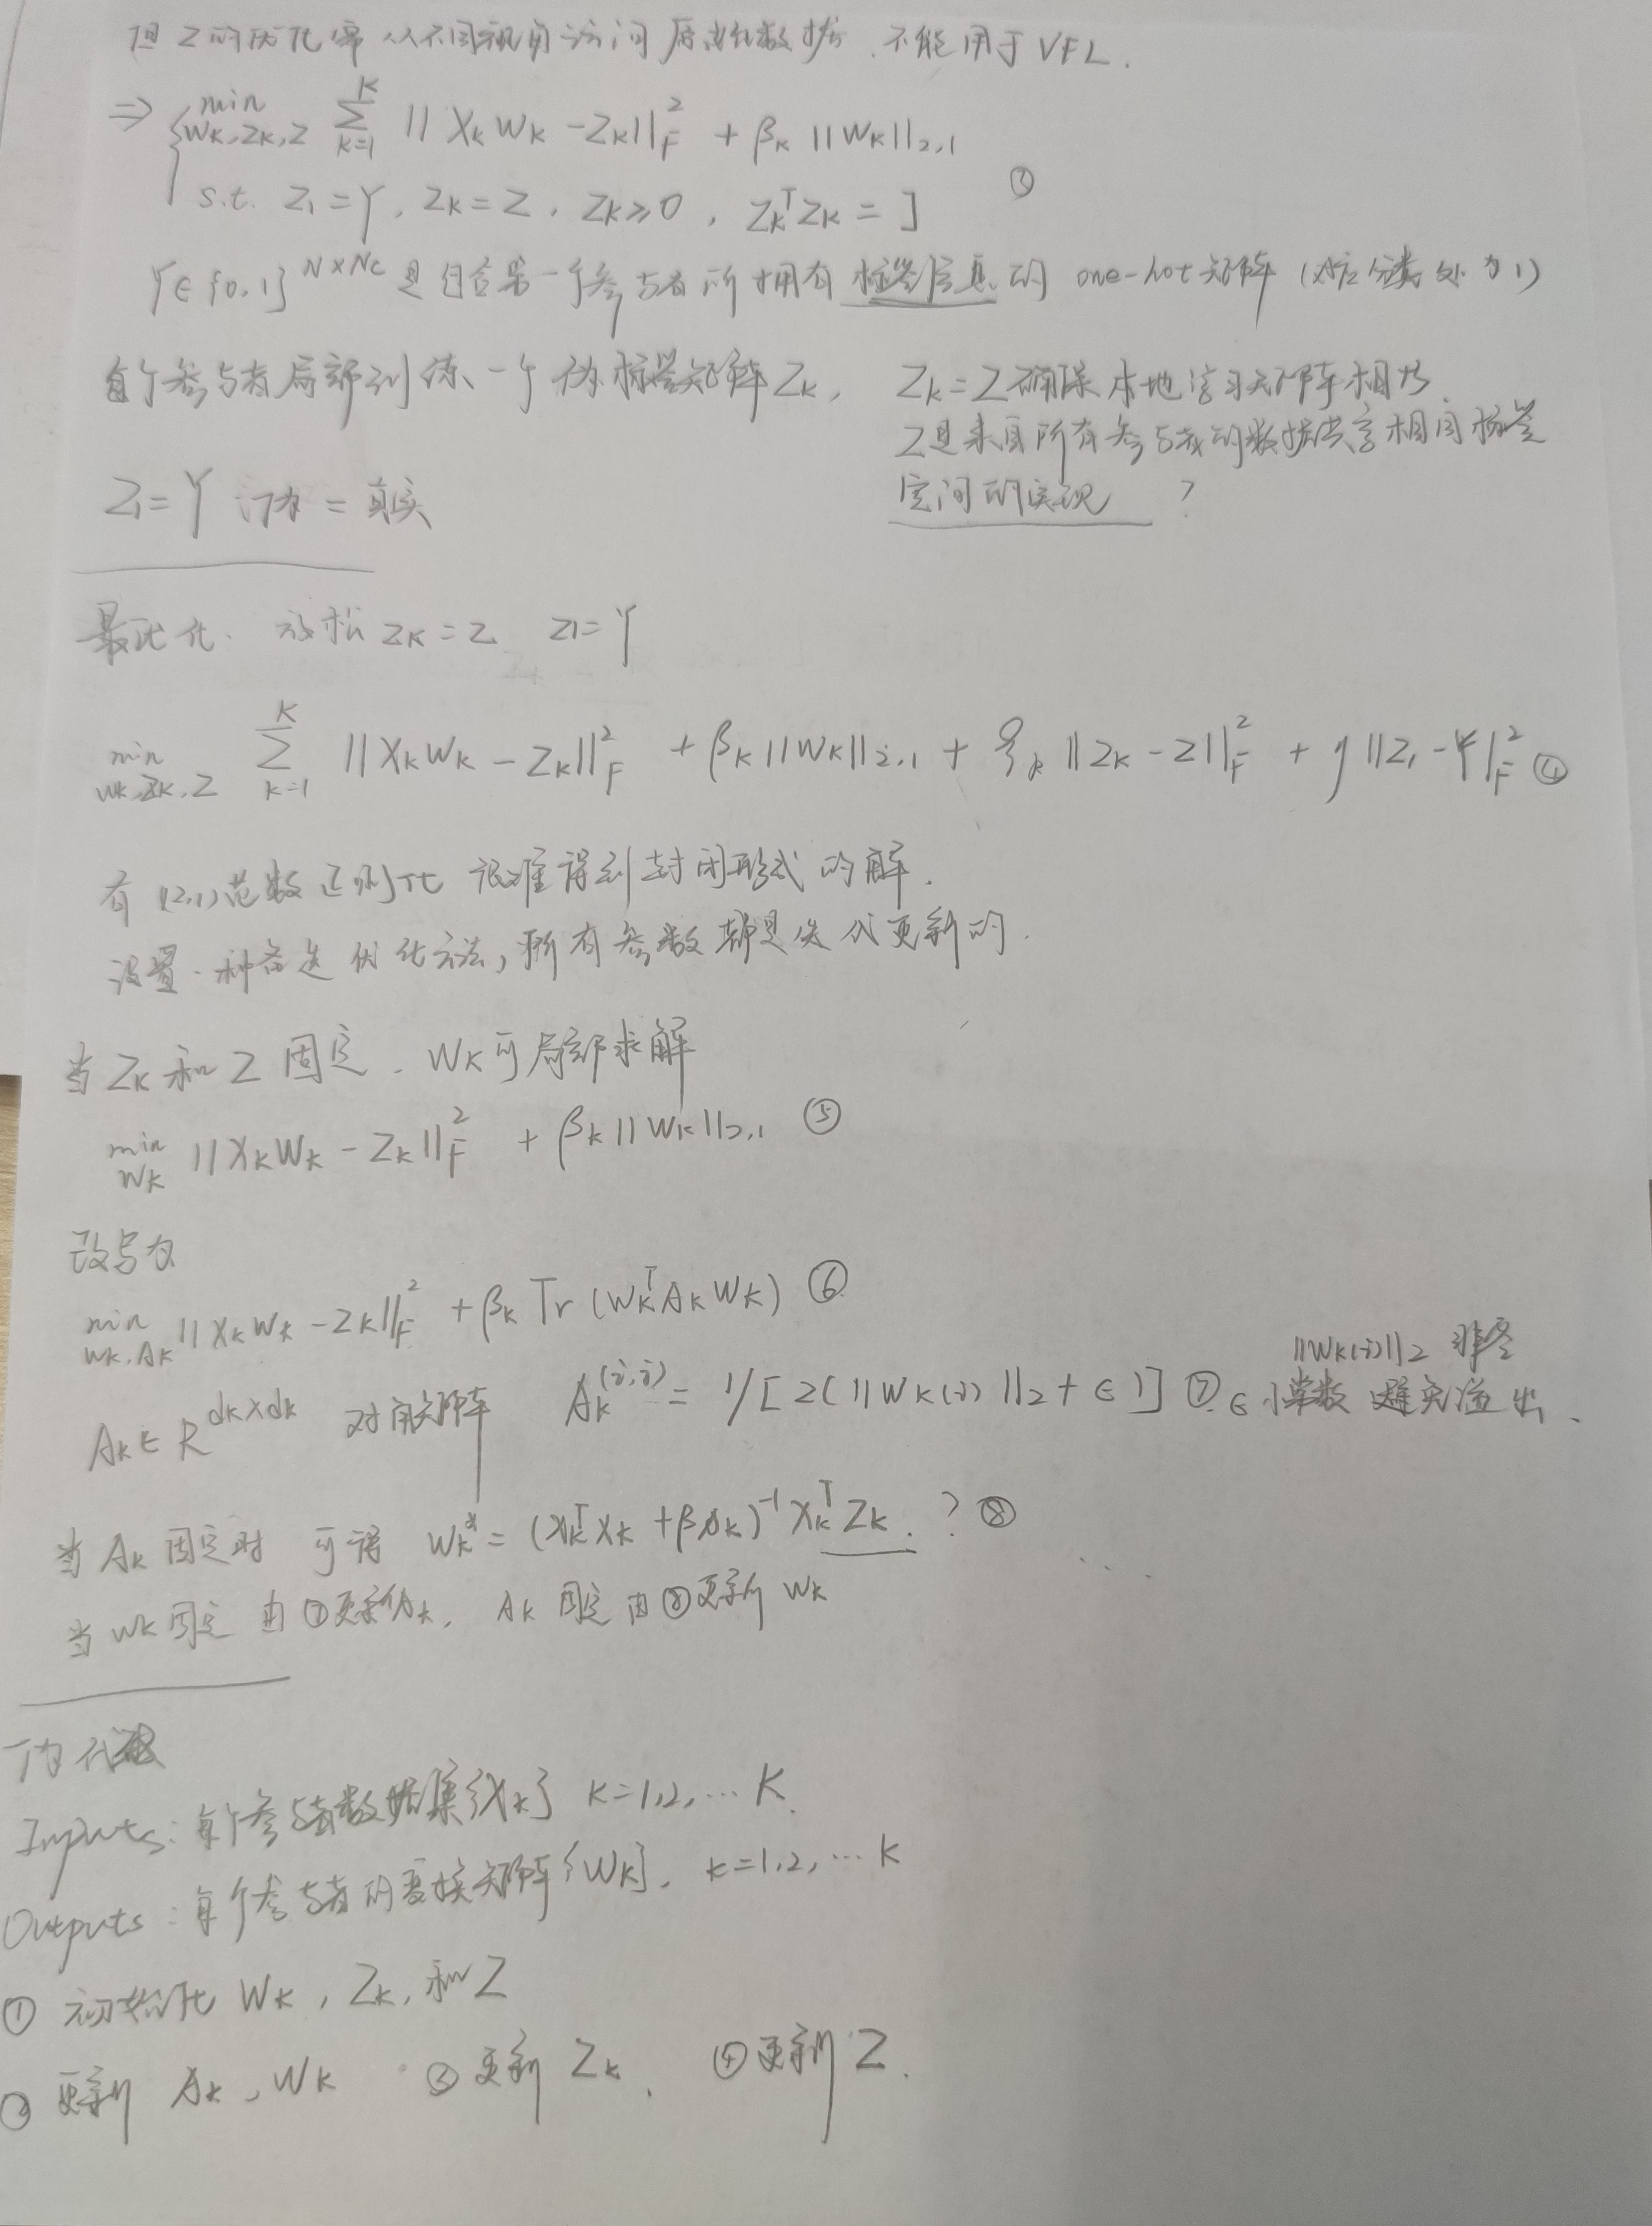 但 Z 的优化需从不同视角访问原始数据,不能用于 VFL.
⇒ { min Wk,Zk,Z Σ_{k=1}^{K} ||XkWk - Zk||_F^2 + βk ||Wk||_{2,1}
s.t. Z1 = Y, Zk = Z, Zk ≥ 0, Zk^T Zk = I ③
Y ∈ {0,1}^{N×Nc} 是包含第一个参与者所拥有标签信息的 one-hot 矩阵 (对应分类处为1)
每个参与者局部训练一个伪标签矩阵 Zk,
Zk = Z 确保本地学习矩阵相为
Z是来自所有参与者的数据共享相同标签
空间的实现 ?
Z1 = Y 伪 = 真实
最优化. 放松 Zk = Z. Z1 = Y
min Wk,Zk,Z Σ_{k=1}^{K} ||XkWk - Zk||_F^2 + βk ||Wk||_{2,1} + ξk ||Zk - Z||_F^2 + η ||Z1 - Y||_F^2 ④
有 (2,1)范数正则化 很难得到封闭形式的解.
设置一种备选优化方法, 所有参数都是迭代更新的.
当 Zk 和 Z 固定. Wk 可局部求解
min Wk ||XkWk - Zk||_F^2 + βk ||Wk||_{2,1} ⑤
改写为
min Wk,Ak ||XkWk - Zk||_F^2 + βk Tr(Wk^T Ak Wk) ⑥
||Wk(i)||2 非零
Ak ∈ R^{dk×dk} 对角矩阵 Ak^{(i,i)} = 1/[2(||Wk(i)||2 + ϵ)] ⑦. ϵ 小常数 避免溢出.
当 Ak 固定时 可得 Wk* = (Xk^T Xk + βAk)^{-1} Xk^T Zk. ? ⑧
当 Wk 固定 由⑦更新Ak, Ak 固定 由⑧更新 Wk
Inputs: 每个参与者数据集{Xk} k=1,2,… K.
Outputs: 每个参与者的变换矩阵{Wk}, k=1,2,… K
① 初始化 Wk, Zk, 和 Z
② 更新 Ak, Wk ③ 更新 Zk. ④ 更新 Z.